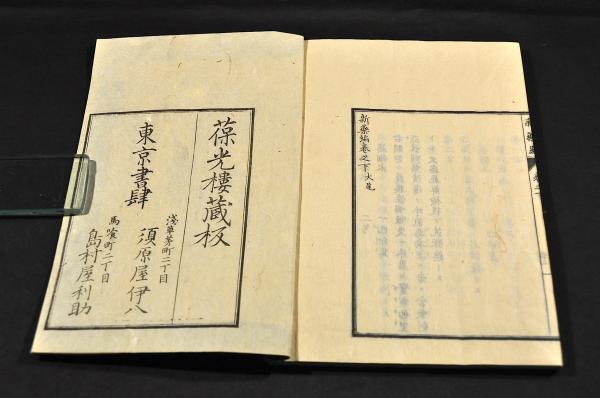 新藥編巻之下大尾
葆光樓蔵板
東京書肆
淺草茅町二丁目
須原屋伊八
馬喰町二丁目
島村屋利助